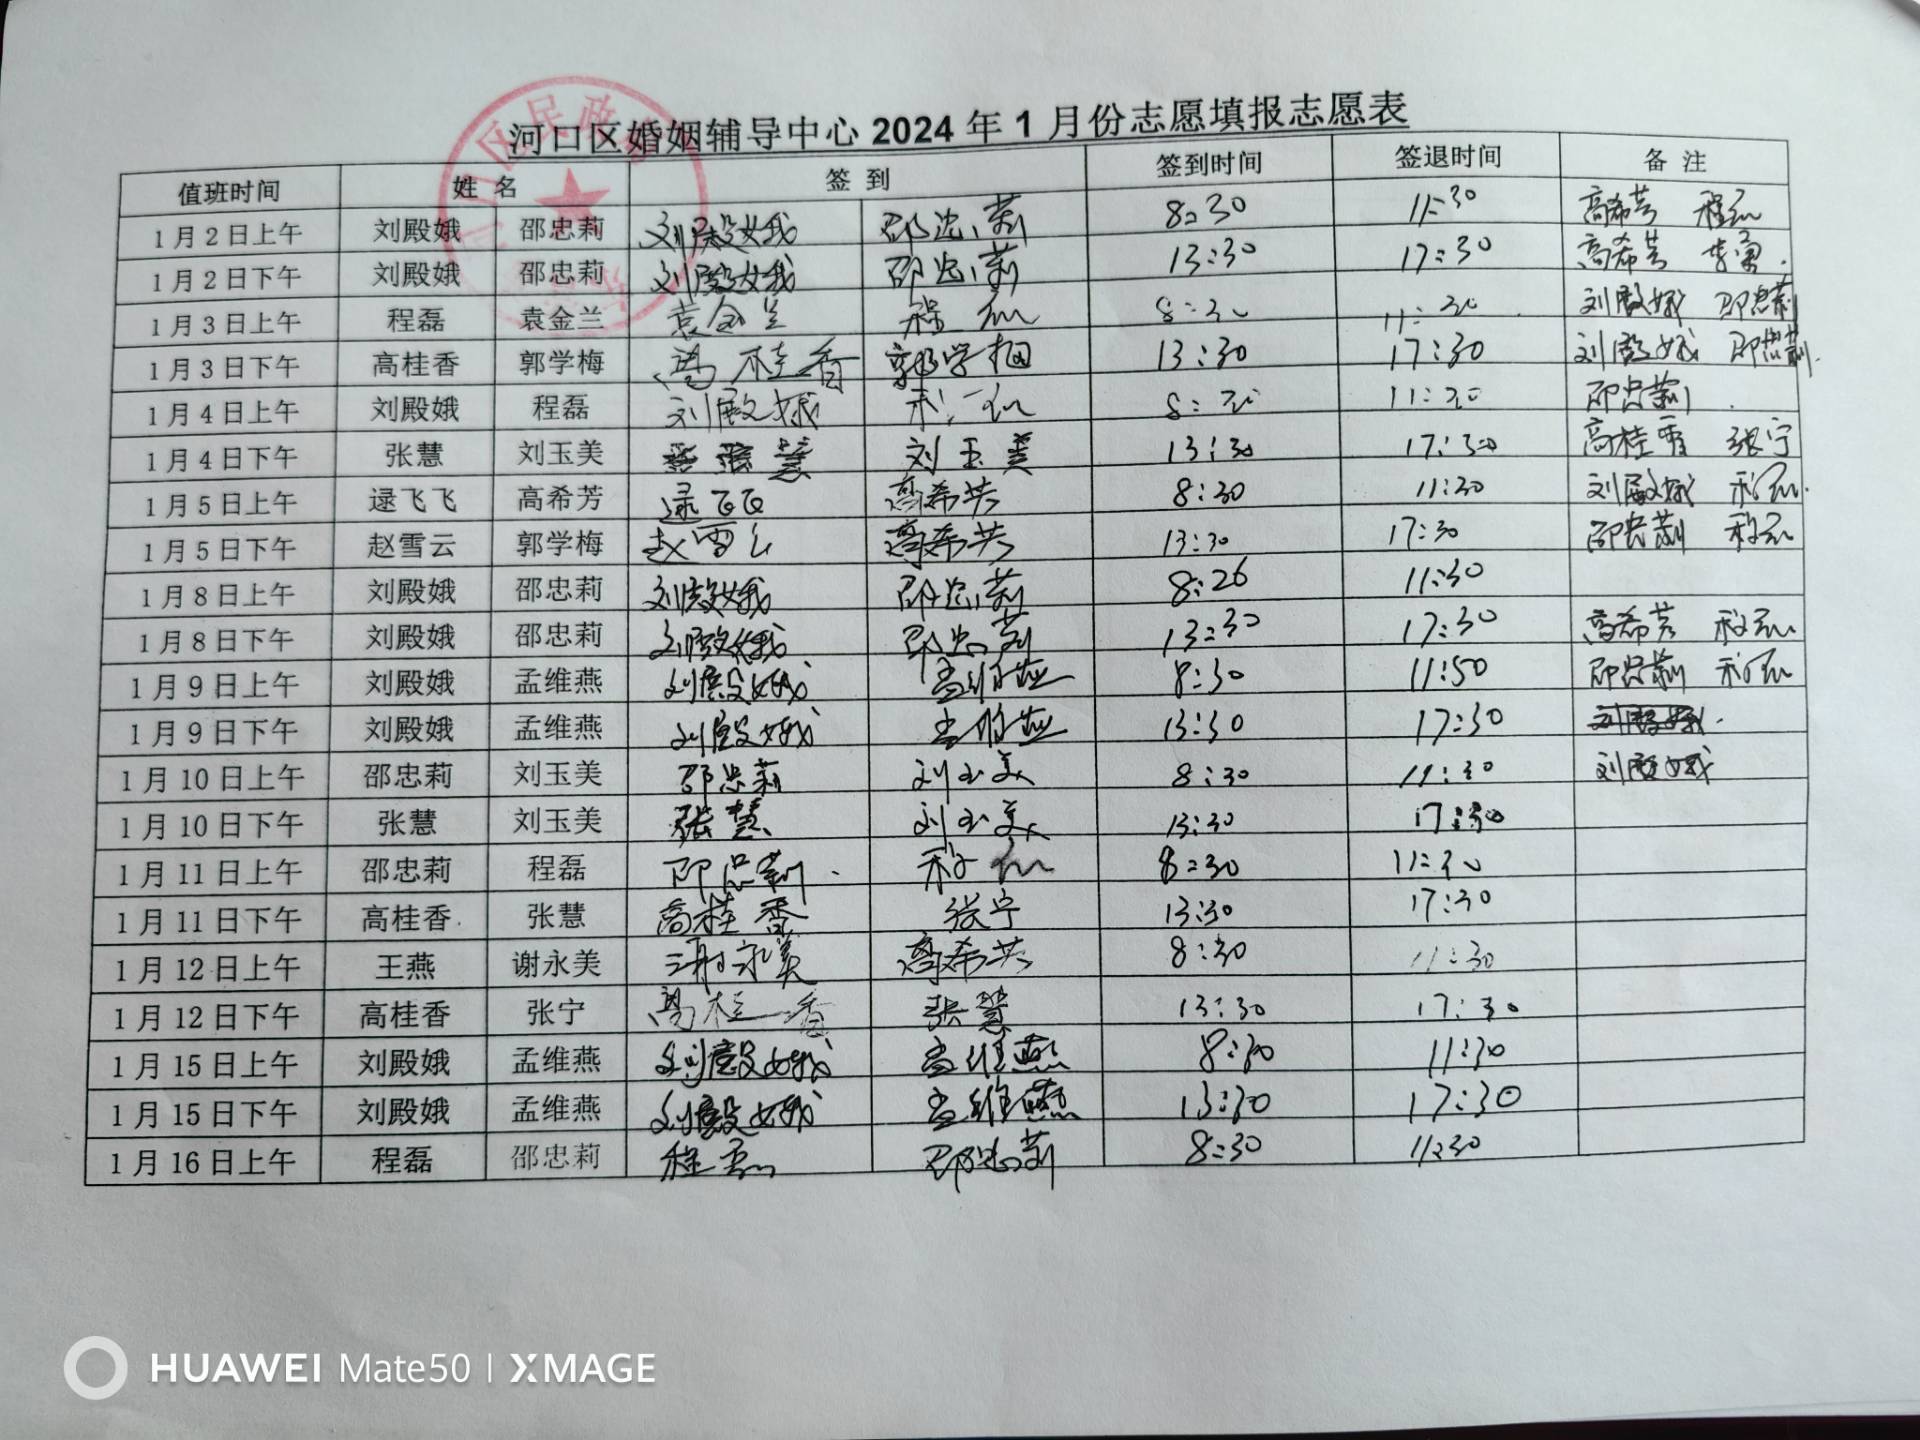 河口区婚姻辅导中心2024年1月份志愿填报志愿表
值班时间 姓名 签到 签到时间 签退时间 备注
1月2日上午 刘殿娥 邵忠莉 刘殿娥 邵忠莉 8:30 11:30 高希芳 程磊
1月2日下午 刘殿娥 邵忠莉 刘殿娥 邵忠莉 13:30 17:30 高希芳 李勇
1月3日上午 程磊 袁金兰 袁金兰 程磊 8:30 11:30 刘殿娥 邵忠莉
1月3日下午 高桂香 郭学梅 高桂香 郭学梅 13:30 17:30 刘殿娥 邵忠莉
1月4日上午 刘殿娥 程磊 刘殿娥 程磊 8:30 11:30 邵忠莉
1月4日下午 张慧 刘玉美 张慧 刘玉美 13:30 17:30 高桂香 张宁
1月5日上午 逯飞飞 高希芳 逯飞飞 高希芳 8:30 11:30 刘殿娥 程磊
1月5日下午 赵雪云 郭学梅 赵雪云 高希芳 13:30 17:30 邵忠莉 程磊
1月8日上午 刘殿娥 邵忠莉 刘殿娥 邵忠莉 8:26 11:30
1月8日下午 刘殿娥 邵忠莉 刘殿娥 邵忠莉 13:30 17:30 高希芳 程磊
1月9日上午 刘殿娥 孟维燕 刘殿娥 孟维燕 8:30 11:50 邵忠莉 程磊
1月9日下午 刘殿娥 孟维燕 刘殿娥 孟维燕 13:30 17:30
1月10日上午 邵忠莉 刘玉美 邵忠莉 刘玉美 8:30 11:30 刘殿娥
1月10日下午 张慧 刘玉美 张慧 刘玉美 13:30 17:30
1月11日上午 邵忠莉 程磊 邵忠莉 程磊 8:30 11:30
1月11日下午 高桂香 张慧 高桂香 张宁 13:30 17:30
1月12日上午 王燕 谢永美 谢永美 高希芳 8:30 11:30
1月12日下午 高桂香 张宁 高桂香 张慧 13:30 17:30
1月15日上午 刘殿娥 孟维燕 刘殿娥 孟维燕 8:30 11:30
1月15日下午 刘殿娥 孟维燕 刘殿娥 孟维燕 13:30 17:30
1月16日上午 程磊 邵忠莉 程磊 邵忠莉 8:30 11:30
HUAWEI Mate50 | XMAGE